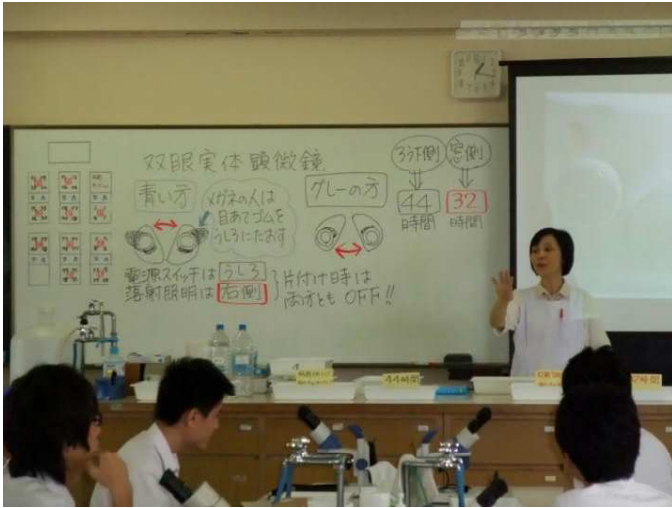 双眼実体顕微鏡
青い方
メガネの人は
目あてゴムを
うしろにたおす
グレーの方
ろうか側
窓側
44
32
時間
時間
電源スイッチは うしろ
落射照明は 右側
片付け時は
両方とも OFF!!
44時間